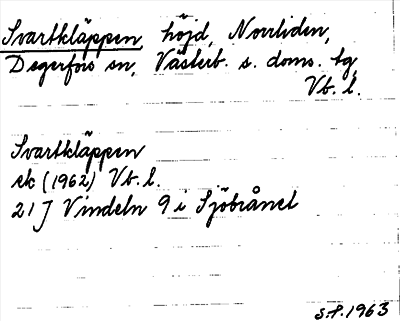 Svartkläppen, höjd, Norrliden,
Degerfors sn, Västerb. s. doms. tg
Vb. l.
Svartkläppen
ek (1962) Vb. l.
21 J Vindeln 9 i Sjöbrånet
S.P. 1963